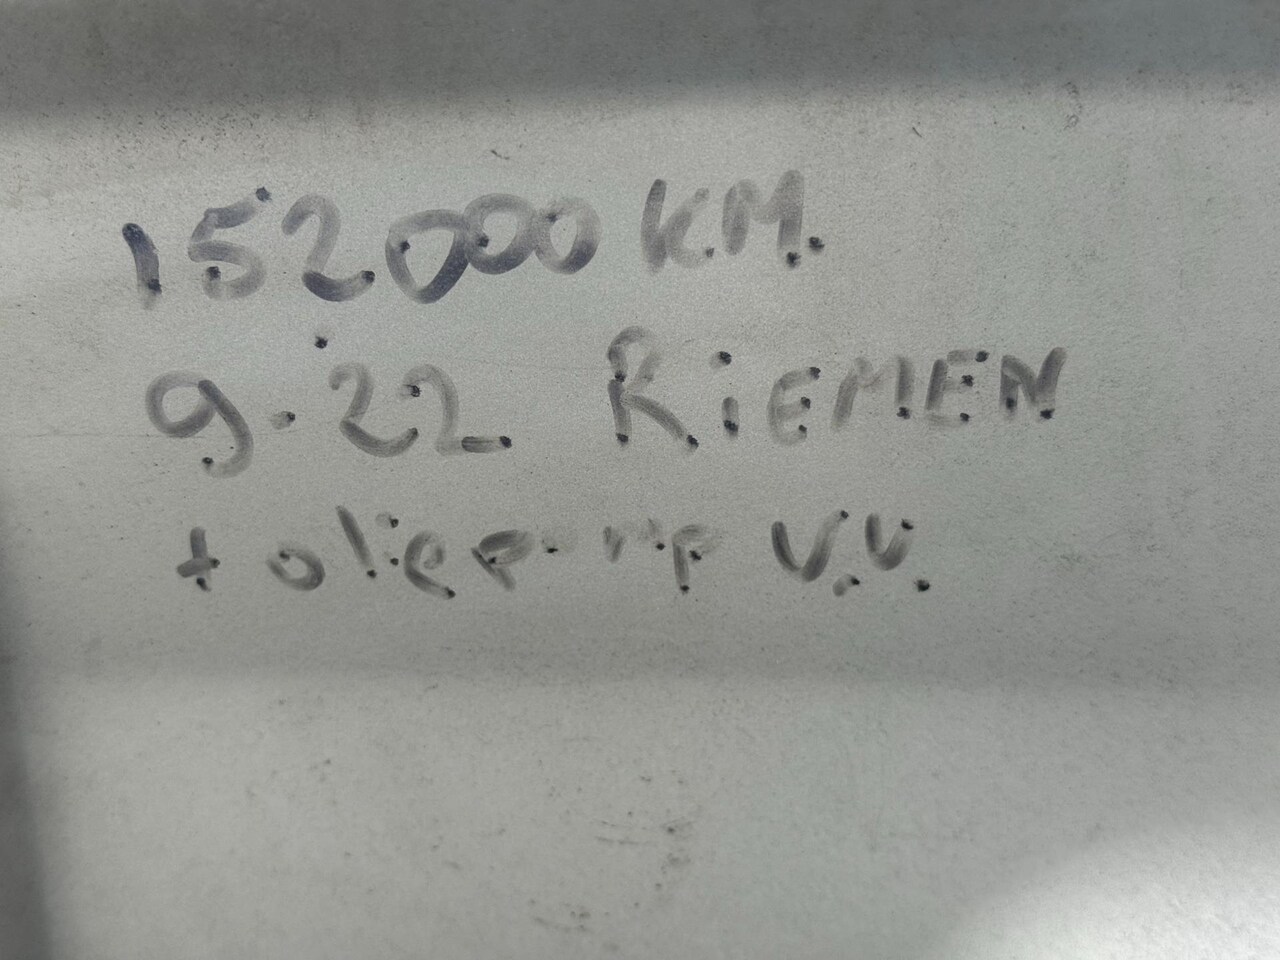 152000 KM.
9.22 RiEMEN
+ oliepomp V.V.